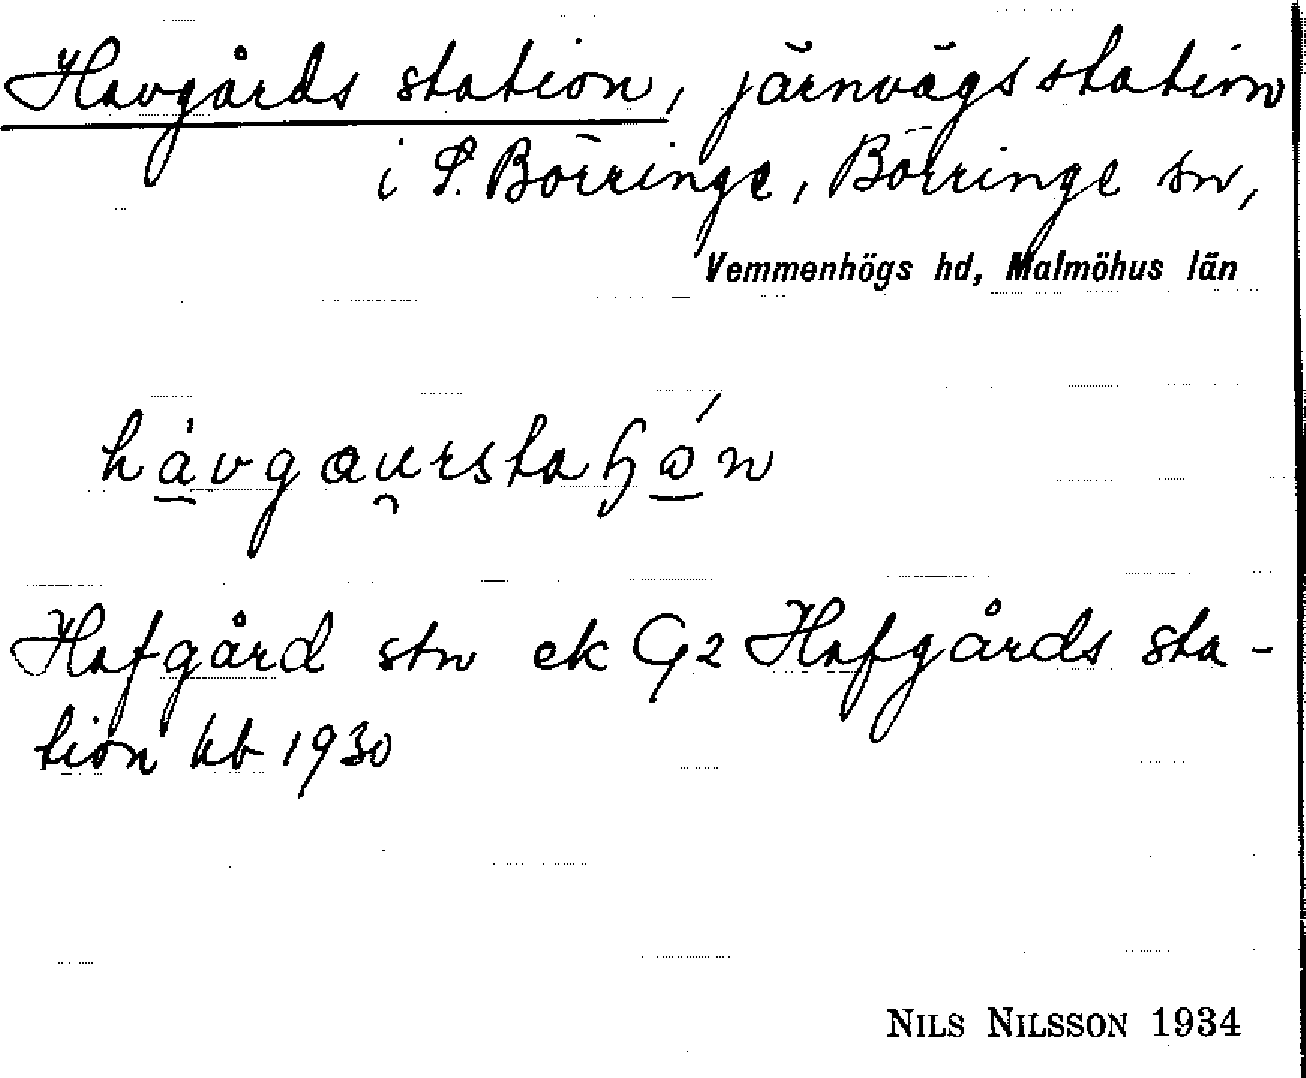 Havgårds station, järnvägsstation
i S. Börringe, Börringe sn,
Vemmenhögs hd, Malmöhus län
Hafgård stn ek G2 Hafgårds sta-
tion kb 1930
NILS NILSSON 1934